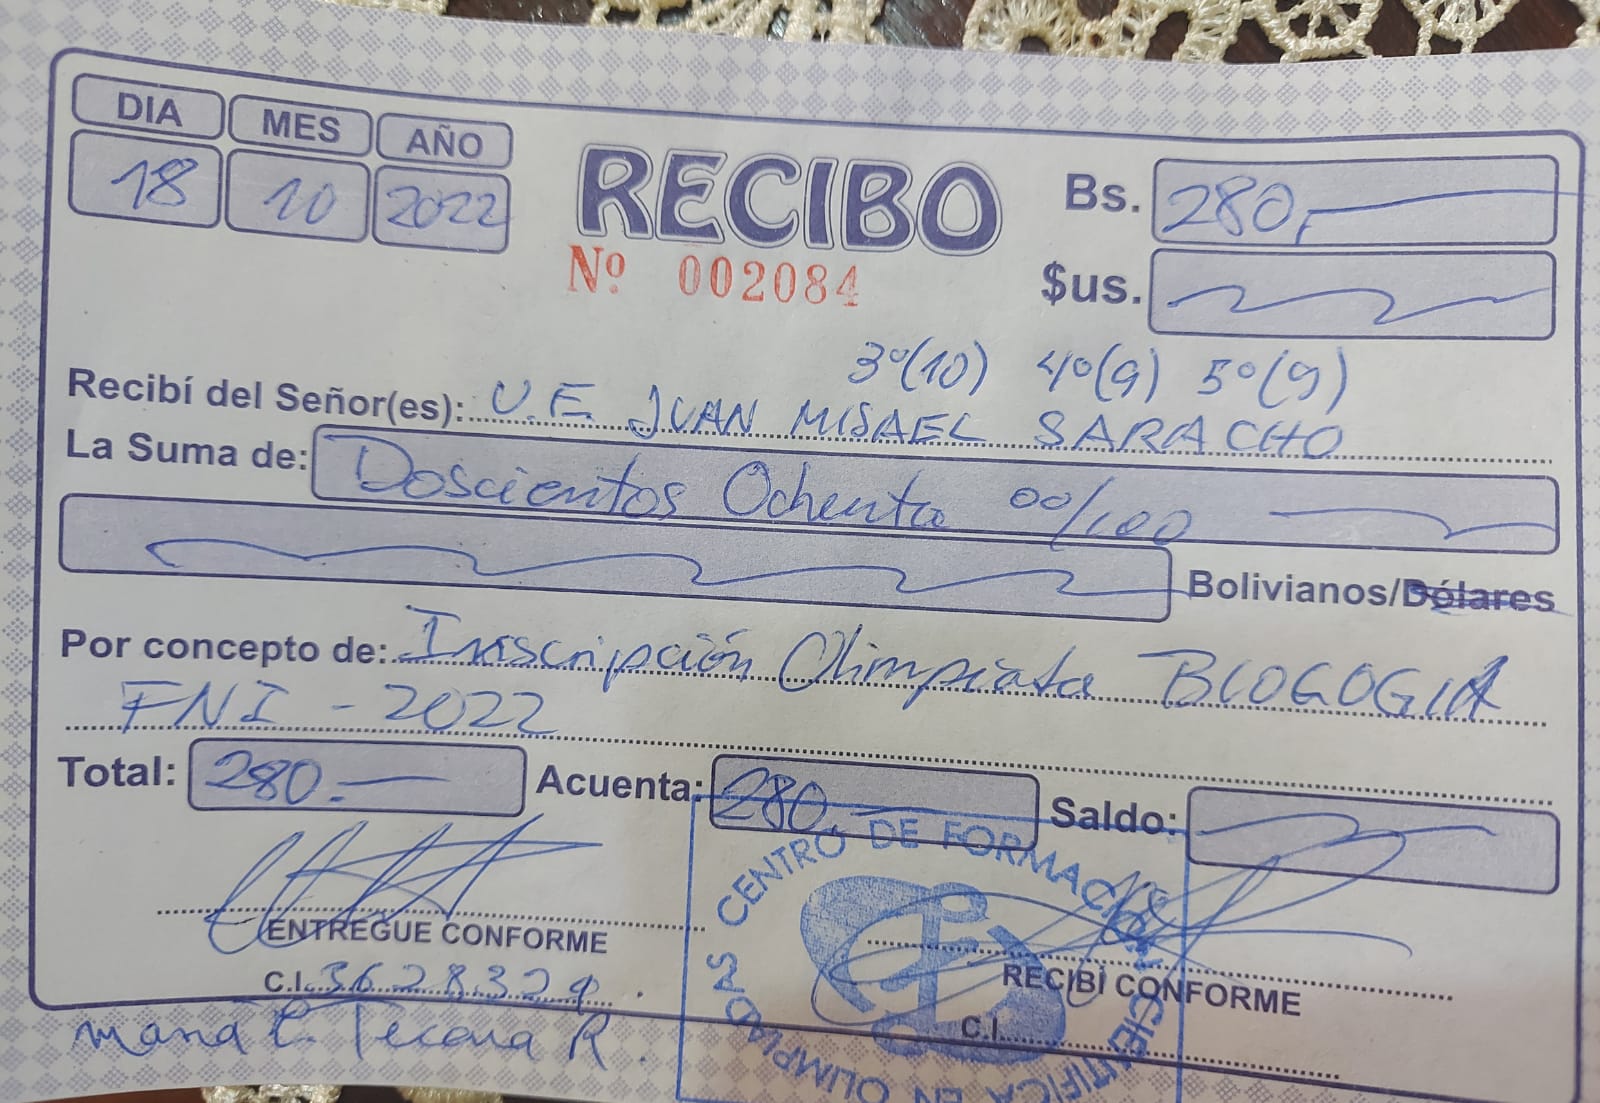 DIA MES AÑO
18 10 2022
RECIBO
Nº 002084
Bs. 280,
$us.
3º(10) 4º(9) 5º(9)
Recibí del Señor(es): U.E. JUAN MISAEL SARACHO
La Suma de: Doscientos Ochenta 00/100
Bolivianos/Dólares
Por concepto de: Inscripción Olimpiada BIOLOGIA
FNI - 2022
Total: 280.- Acuenta: 280 Saldo:
ENTREGUE CONFORME
C.I. 3628324
Tecona R.
RECIBÍ CONFORME
C.I.
CENTRO DE FORMACIÓN CIENTIFICA EN OLIMPIADAS